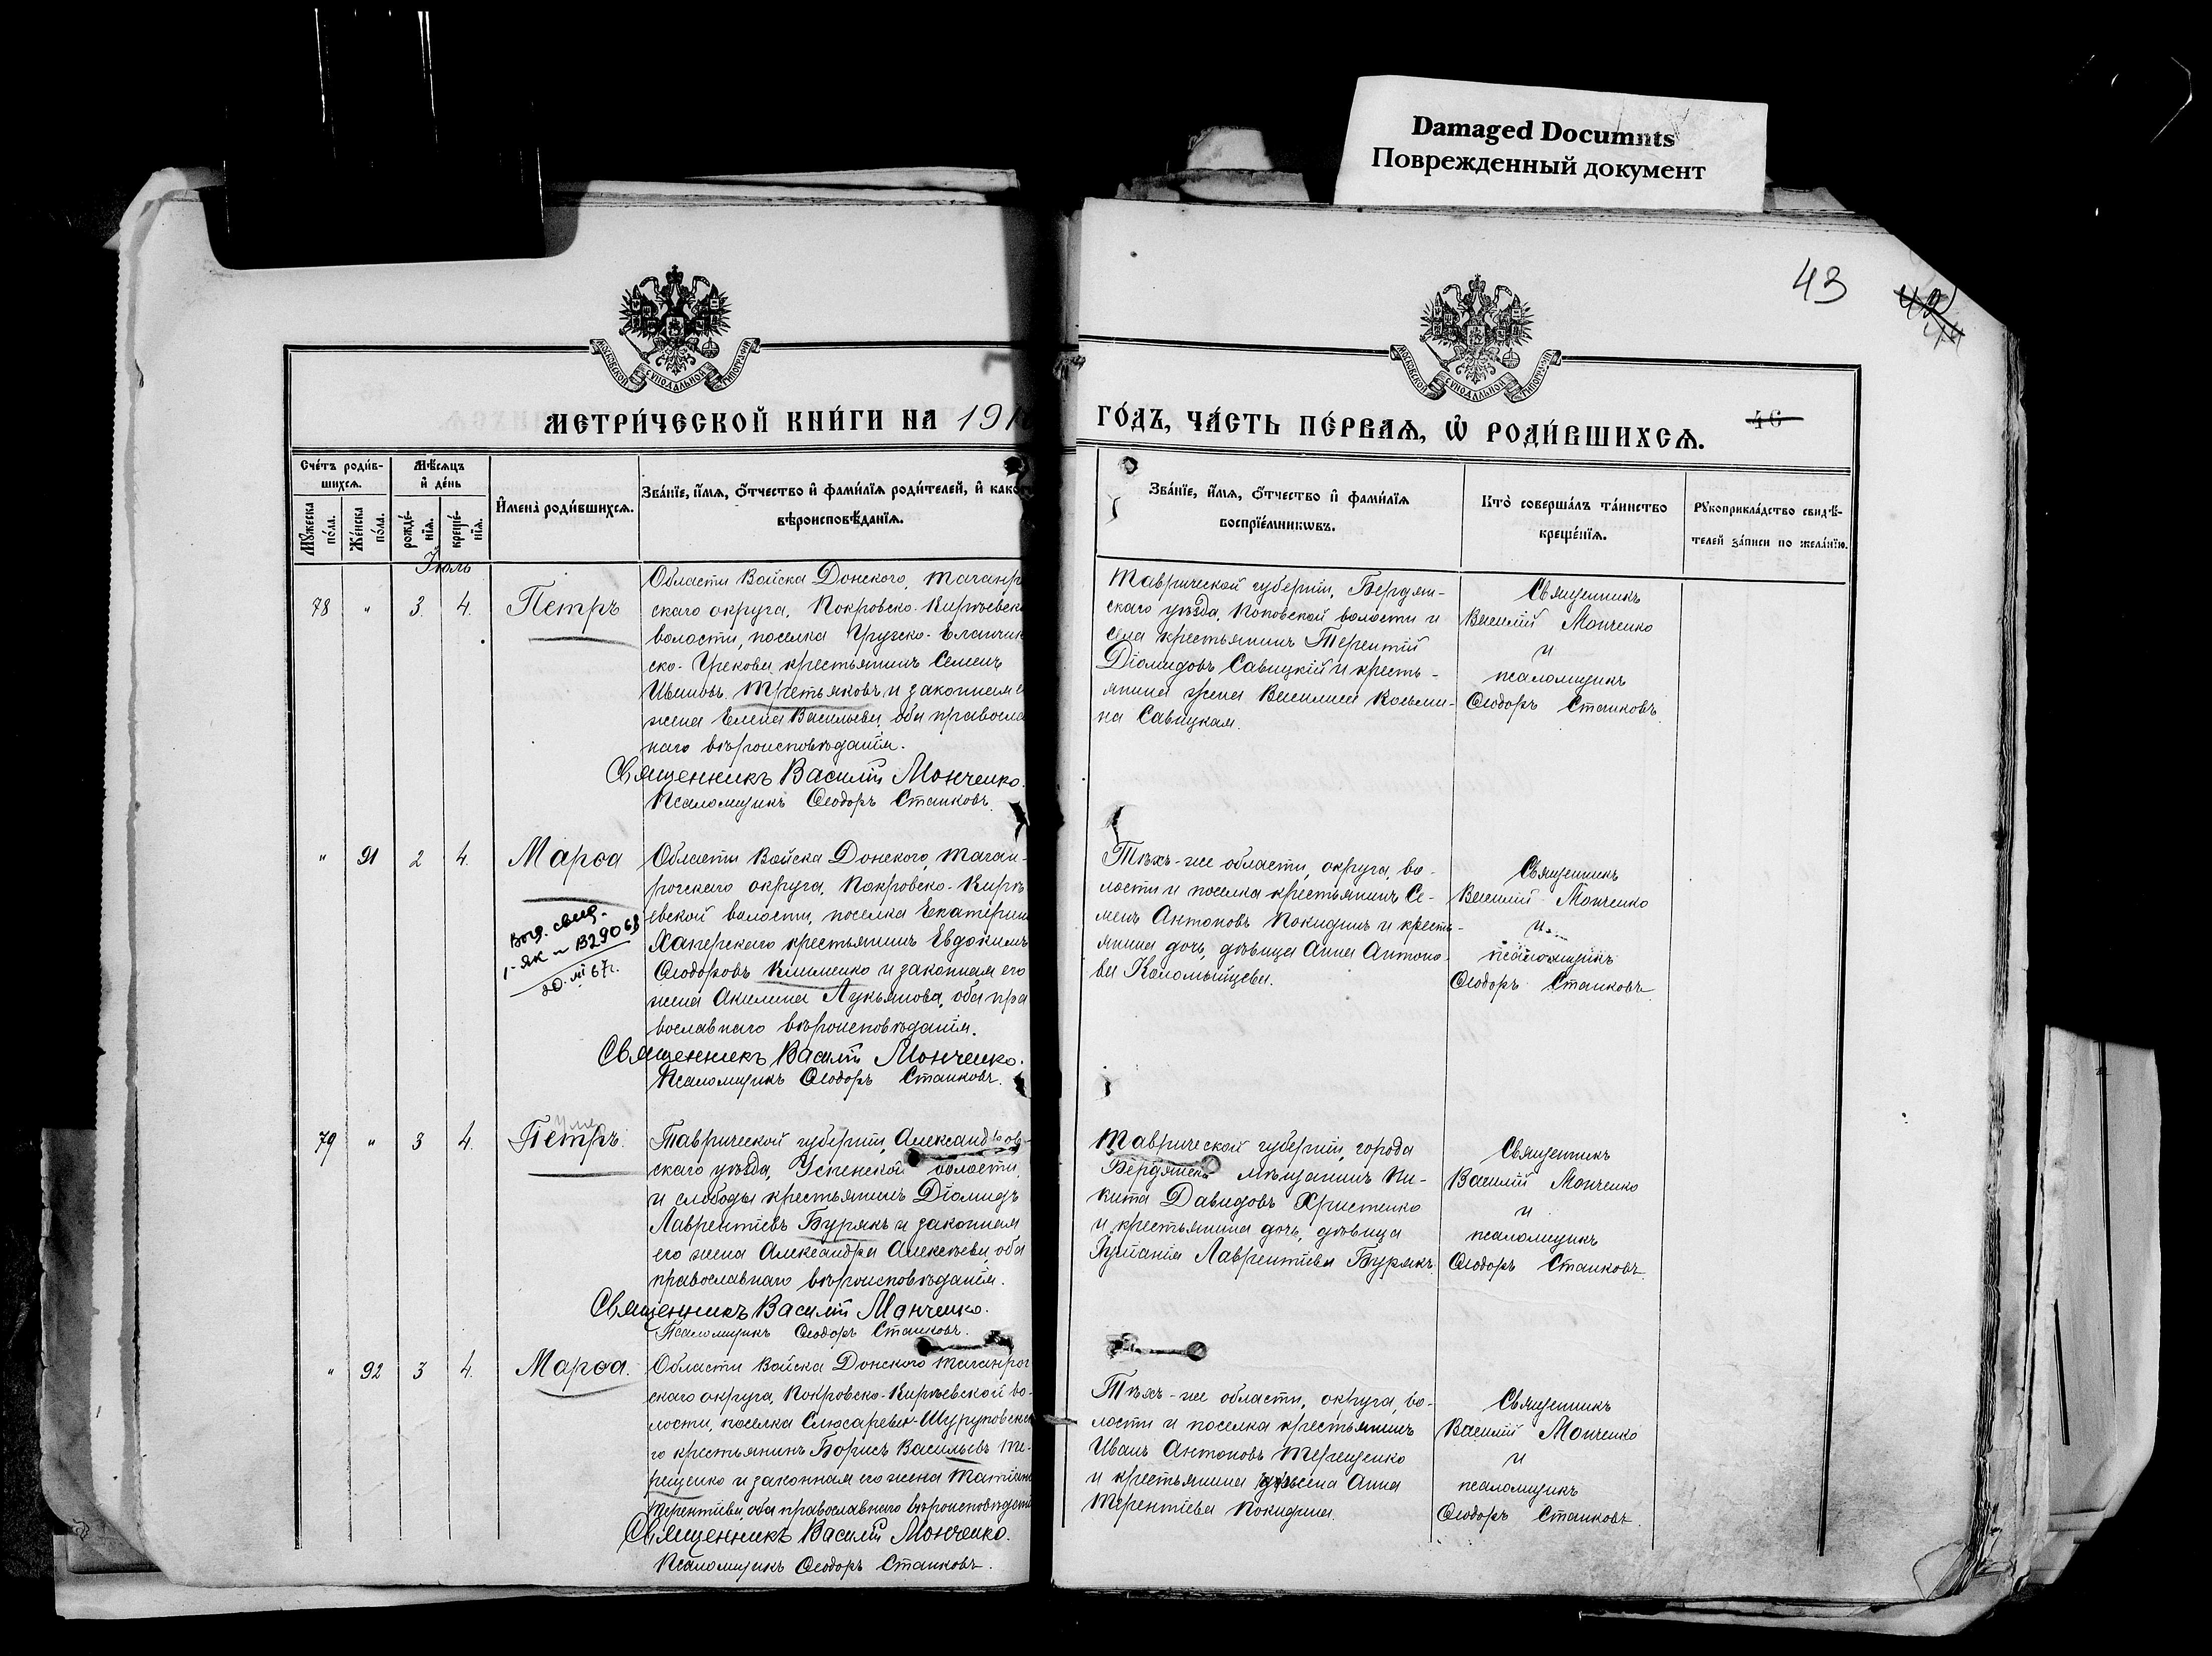 Damaged Documnts
Поврежденный документ
43
46
МОСКОВСКОЙ СѴНОДАЛЬНОЙ ТИПОГРАФІИ
МОСКОВСКОЙ СѴНОДАЛЬНОЙ ТИПОГРАФІИ
МЕТРИ́ЧЕСКОЙ КНИ́ГИ НА 191
ГО́ДЪ, ЧА́СТЬ ПЕ́РВАѦ, Ѽ РОДИ́ВШИХСѦ.
Сче́тъ роди́в-
шихсѧ.
Мѣ́сѧцъ
и҆ де́нь
Мꙋжеска
по́ла.
Же́нска
по́ла.
рожде́-
нїѧ.
креще́-
нїѧ.
И҆мена̀ роди́вшихсѧ.
Зва́нїе, и҆́мѧ, ѻ҆́тчество и҆ фами́лїѧ роди́телей, и҆ како
вѣроисповѣ́данїѧ.
Зва́нїе, и҆́мѧ, ѻ҆́тчество и҆ фами́лїѧ
воспрїе́мникѡвъ.
Кто̀ соверша́лъ та́инство
креще́нїѧ.
Рꙋкоприкла́дство свидѣ́-
телей за́писи по жела́нїю.
Іюль
78 " 3. 4. Петръ
Области Войска Донского, Таганр
скаго округа, Покровско-Кирѣевск
волости, поселка Грузско-Еланчик
ско-Грекова крестьянинъ Семенъ
Ивановъ Третьяковъ и законная е
жена Елена Васильева, оба правосла
наго вѣроисповѣданія.
Священникъ Василій Монченко.
Псаломщикъ Ѳеодоръ Станковъ.
Таврической губерніи, Бердян-
скаго уѣзда, Поповской волости и
села крестьянинъ Терентій
Діомидовъ Савицкій и кресть-
янина жена Васса Козьми-
на Савицкая.
Священникъ
Василій Монченко
и
псаломщикъ
Ѳеодоръ Станковъ.
" 91 2 4. Марѳа
Выд. свид.
20.VI 67г.
Области Войска Донского, Таган-
рогскаго округа, Покровско-Кирѣ
евской волости, поселка Екатерин
Хаперскаго крестьянинъ Евдокимъ
Ѳеодоровъ Клименко и законная его
жена Акилина Лукьянова, оба пра
вославнаго вѣроисповѣданія.
Священникъ Василій Монченко.
Псаломщикъ Ѳеодоръ Станковъ.
Тѣхъ-же области, округа, во-
лости и поселка крестьянинъ Се-
менъ Антоновъ Покидинъ и кресть-
янина дочь, дѣвица Анна Антоно-
ва Коломыйцева.
Священникъ
Василій Монченко
и
псаломщикъ
Ѳеодоръ Станковъ
79 " 3 4. Петръ.
Таврической губерніи, Александров-
скаго уѣзда, Успенской волости
и слободы крестьянинъ Діомидъ
Лаврентіевъ Бурякъ и законная
его жена Александра Алексѣева, оба
православнаго вѣроисповѣданія.
Священникъ Василій Монченко.
Псаломщикъ Ѳеодоръ Станковъ.
Таврической губерніи, города
Бердянска мѣщанинъ Ни-
кита Давидовъ Христенко
и крестьянина дочь, дѣвица
Іуліанія Лаврентіева Бурякъ.
Священникъ
Василій Монченко
и
псаломщикъ
Ѳеодоръ Станковъ.
" 92 3 4. Марѳа.
Области Войска Донского, Таганрог
скаго округа, Покровско-Кирѣевской во-
лости, поселка Слюсарево-Шурупоvска
го крестьянинъ Борисъ Васильевъ Те-
рещенко и законная его жена Татіана
Терентіева, оба православнаго вѣроисповѣдан
Священникъ Василій Монченко.
Псаломщикъ Ѳеодоръ Станковъ.
Тѣхъ-же области, округа, во-
лости и поселка крестьянинъ
Иванъ Антоновъ Терещенко
и крестьянина жена Анна
Терентіева Покидина.
Священникъ
Василій Монченко
и
псаломщикъ
Ѳеодоръ Станковъ.